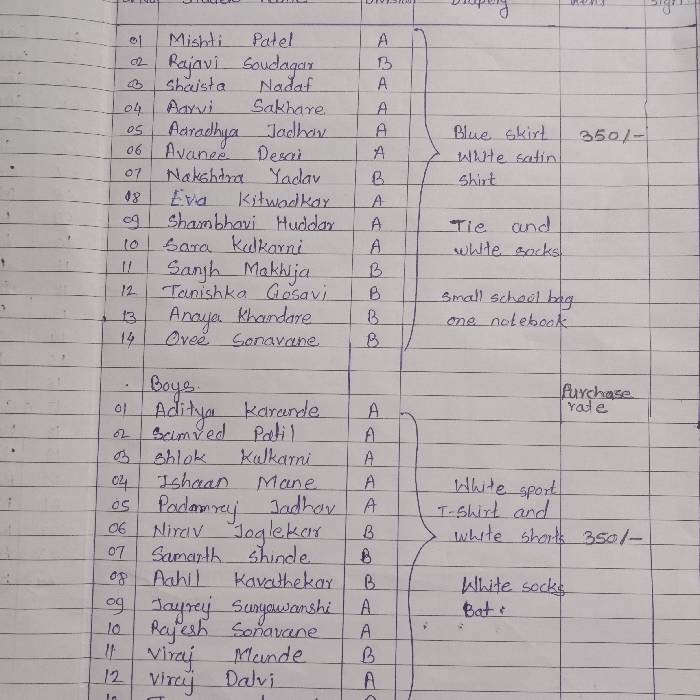 Division Drapery Rent Sign
01 Mishti Patel A
02 Rajavi Soudagar B
03 Shaista Nadaf A
04 Aarvi Sakhare A
05 Aaradhya Jadhav A Blue skirt 350/-
06 Avanee Desai A White satin
07 Nakshtra Yadav B shirt
08 Eva Kitwadkar A
09 Shambhavi Huddar A Tie and
10 Sara Kulkarni A white socks
11 Sanjh Makhija B
12 Tanishka Gosavi B small school bag
13 Anaya Khandare B one notebook
14 Ovee Sonavane B
Boys. Purchase
01 Aditya Karande A rate
02 Samved Patil A
03 Shlok Kulkarni A
04 Ishaan Mane A White sport
05 Padamrej Jadhav A T-shirt and
06 Nirav Joglekar B white shorts 350/-
07 Samarth Shinde B
08 Aahil Kavathekar B White socks
09 Jayrej Suryawanshi A Bat.
10 Rajesh Sonavane A
11 Viraj Mande B
12 Viraj Dalvi A